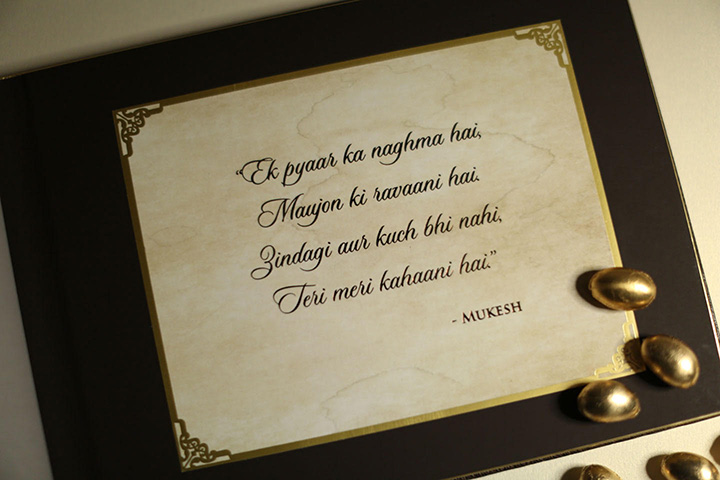 "Ek pyaar ka naghma hai,
Maujon ki ravaani hai.
Zindagi aur kuch bhi nahi,
Teri meri kahaani hai."
- MUKESH